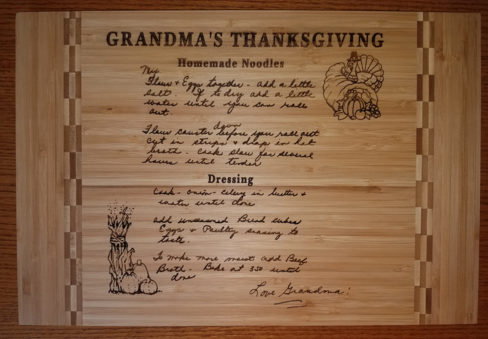 GRANDMA'S THANKSGIVING
Homemade Noodles
Mix
Flour + Eggs together - add a little
salt. If to dry add a little
water until you can roll
out.
down
Flour counter before you roll out
cut in strips & drop in hot
broth. Cook slow for several
hours until tender
Dressing
Cook - onion - celery in butter &
water until done
add unseasoned Bread cubes
Eggs & Poultry seasoning to
taste.
To make more moist add Beef
Broth. Bake at 350 until
done
Love Grandma!